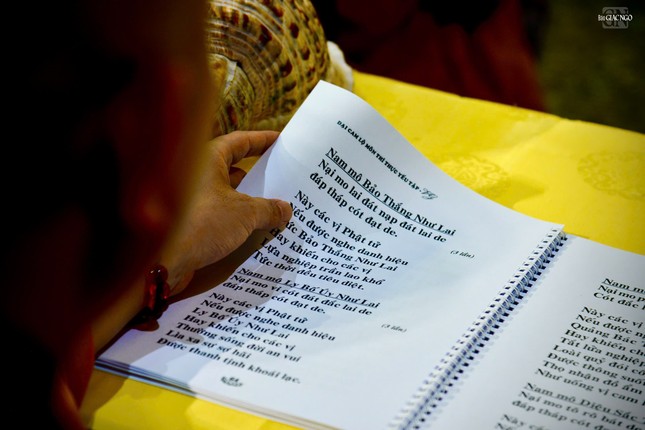 Báo GIÁC NGỘ
ĐẠI CAM LỘ MÔN THÍ THỰC YẾU TẬP
Nam mô Bảo Thắng Như Lai
Nại mo lai đát nạp đát lai de
đáp tháp cót đạt de.
(3 lần)
Này các vị Phật tử
Nếu được nghe danh hiệu
Đức Bảo Thắng Như Lai
Hay khiến cho các vị
Lửa nghiệp trần lao khổ
Tức thời đều tiêu diệt.
Nam mô Ly Bố Úy Như Lai
Nại mo vi cót đát đắc lai de
đáp tháp cót đạt de.
(3 lần)
Này các vị Phật tử
Nếu được nghe danh hiệu
Ly Bố Úy Như Lai
Hay khiến cho các vị
Thường sống đời an vui
Lìa xa sự sợ hãi
Được thanh tịnh khoái lạc.
Nam mô
Nại mo
Cót đát
Này các vị
Nếu được
Quảng Bác
Hay khiến
Tất lửa nghiệp
Loài quỷ đói
Được thông
Thọ nhận đồ ẩm
Như uống vị cam
Nam mô Diệu Sắc
Nại mo tô rô bát
đáp tháp cót đạt
Này các vị
Nếu được